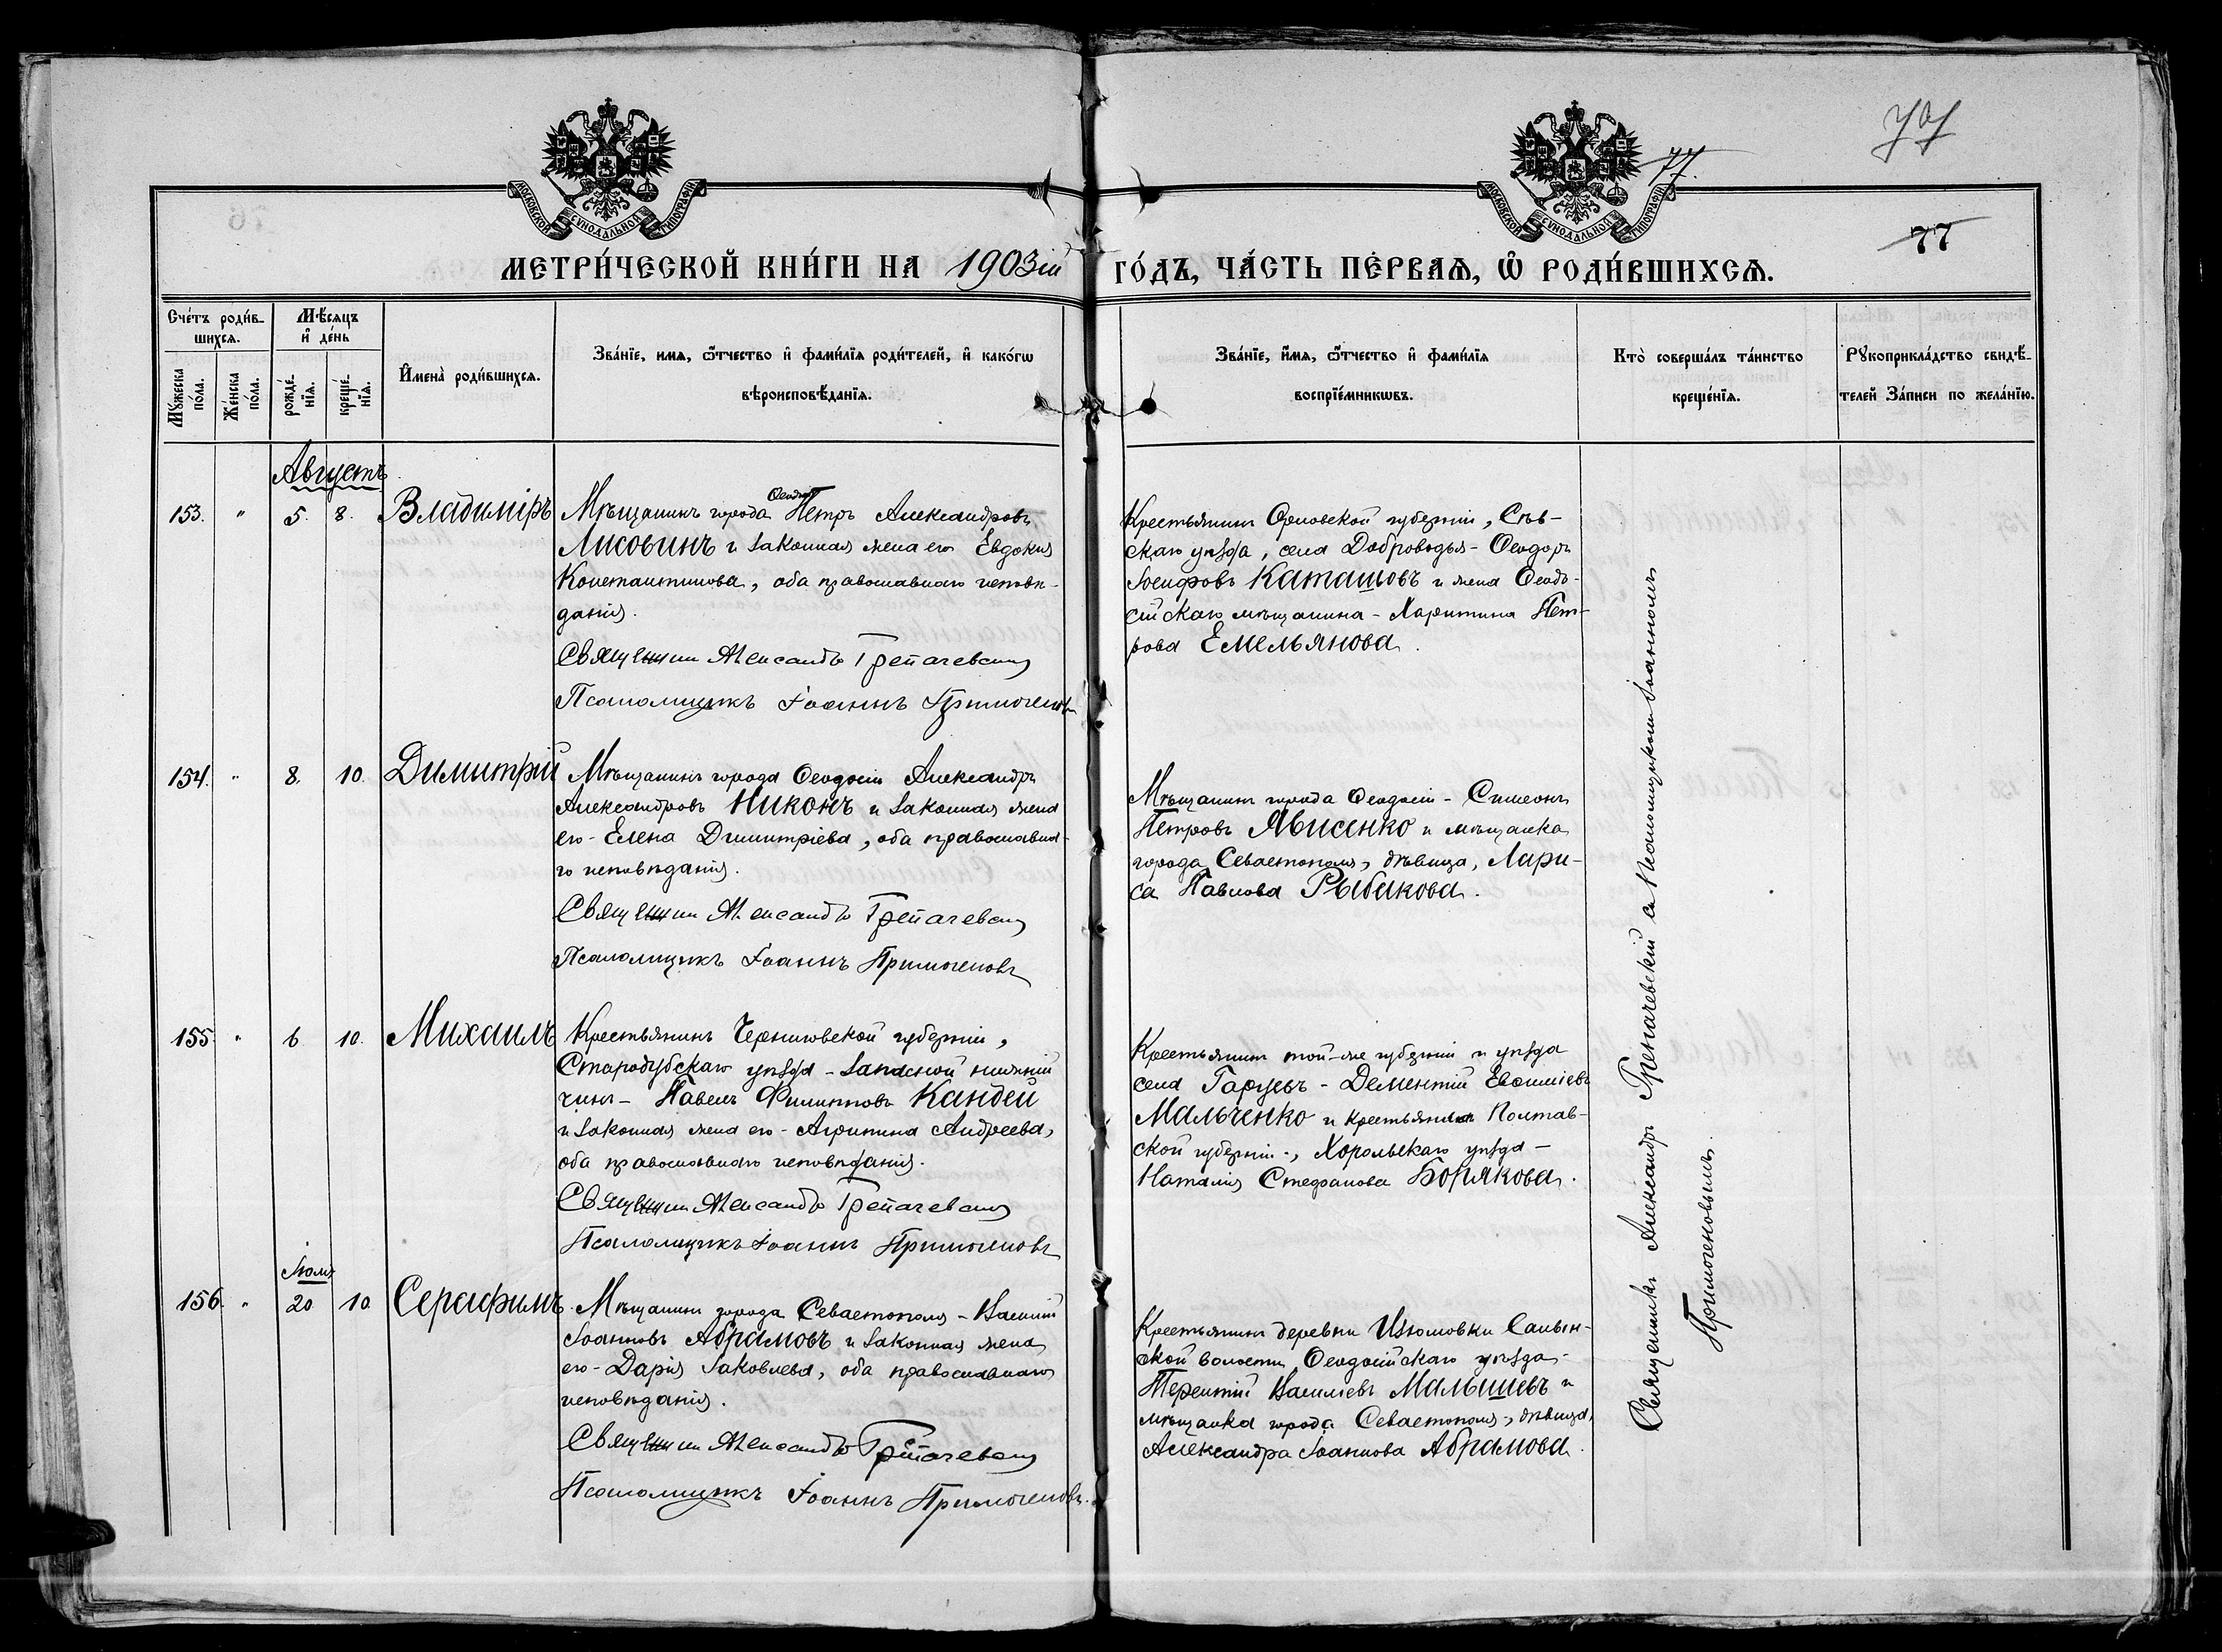 77
77.
77
МОСКОВСКОЙ СѴНОДАЛЬНОЙ ТИПОГРАФІИ
МОСКОВСКОЙ СѴНОДАЛЬНОЙ ТИПОГРАФІИ
МЕТРИ́ЧЕСКОЙ КНИ́ГИ НА 1903ій ГО́ДЪ, ЧА́СТЬ ПЕ́РВАѦ, Ѽ РОДИ́ВШИХСѦ.
Сче́тъ роди́в-
шихсѧ.
Мѣ́сѧцъ
и҆ де́нь
Му́жеска по́ла.
Же́нска по́ла.
рожде́-
нїѧ.
креще́-
нїѧ.
И҆мена̀ роди́вшихсѧ.
Зва́нїе, имѧ, ѻ҆́тчество и҆ фами́лїѧ роди́телей, и҆ како́гѡ
вѣроисповѣ́данїѧ.
Зва́нїе, и҆́мѧ, ѻ҆́тчество и҆ фами́лїѧ
воспрїе́мникѡвъ.
Кто̀ соверша́лъ та́инство
креще́нїѧ.
Рꙋкоприкла́дство свидѣ́-
телей За́писи по жела́нїю.
Августъ
153. " 5. 8. Владиміръ
Мѣщанинъ города Ѳеодосіи Петръ Александровъ
Лисовинъ и законная жена его Евдокія
Константинова, оба православнаго исповѣ-
данія.
Священникъ Александръ Грепачевскій
Псаломщикъ Іоаннъ Примогеновъ
Крестьянинъ Орловской губерніи, Сѣв-
скаго уѣзда, села Доброводья - Ѳеодоръ
Іосифовъ Каташовъ и жена Ѳеодо-
сійскаго мѣщанина - Харитина Пет-
рова Емельянова.
154. " 8. 10. Димитрій
Мѣщанинъ города Ѳеодосіи Александръ
Александровъ Никонъ и законная жена
его - Елена Димитріева, оба православна-
го исповѣданія.
Священникъ Александръ Грепачевскій
Псаломщикъ Іоаннъ Примогеновъ
Мѣщанинъ города Ѳеодосіи - Симеонъ
Петровъ Явисенко и мѣщанка
города Севастополя, дѣвица, Лари-
са Павлова Рыбакова.
155. " 6 10. Михаилъ
Крестьянинъ Черниговской губерніи,
Стародубскаго уѣзда - запасной нижній
чинъ - Павелъ Филипповъ Кандей
и законная жена его - Агрипина Андреева,
оба православнаго исповѣданія.
Священникъ Александръ Грепачевскій
Псаломщикъ Іоаннъ Примогеновъ
Крестьянинъ той-же губерніи и уѣзда
села Гарцевъ - Дементій Евѳиміевъ
Мальченко и крестьянка Полтав-
ской губерніи, Хорольскаго уѣзда -
Наталія Стефанова Борякова.
Іюля
156. " 20 10 Серафимъ.
Мѣщанинъ города Севастополя - Василій
Іоанновъ Абрамовъ и законная жена
его - Дарія Іаковлева, оба православнаго
исповѣданія.
Священникъ Александръ Грепачевскій
Псаломщикъ Іоаннъ Примогеновъ.
Крестьянинъ деревни Изюмовки Салын-
ской волости Ѳеодосійскаго уѣзда -
Терентій Васильевъ Малышевъ и
мѣщанка города Севастополя, дѣвица,
Александра Іоаннова Абрамова.
Священникъ Александръ Грепачевскій съ Псаломщикомъ Іоанномъ
Примогеновымъ.